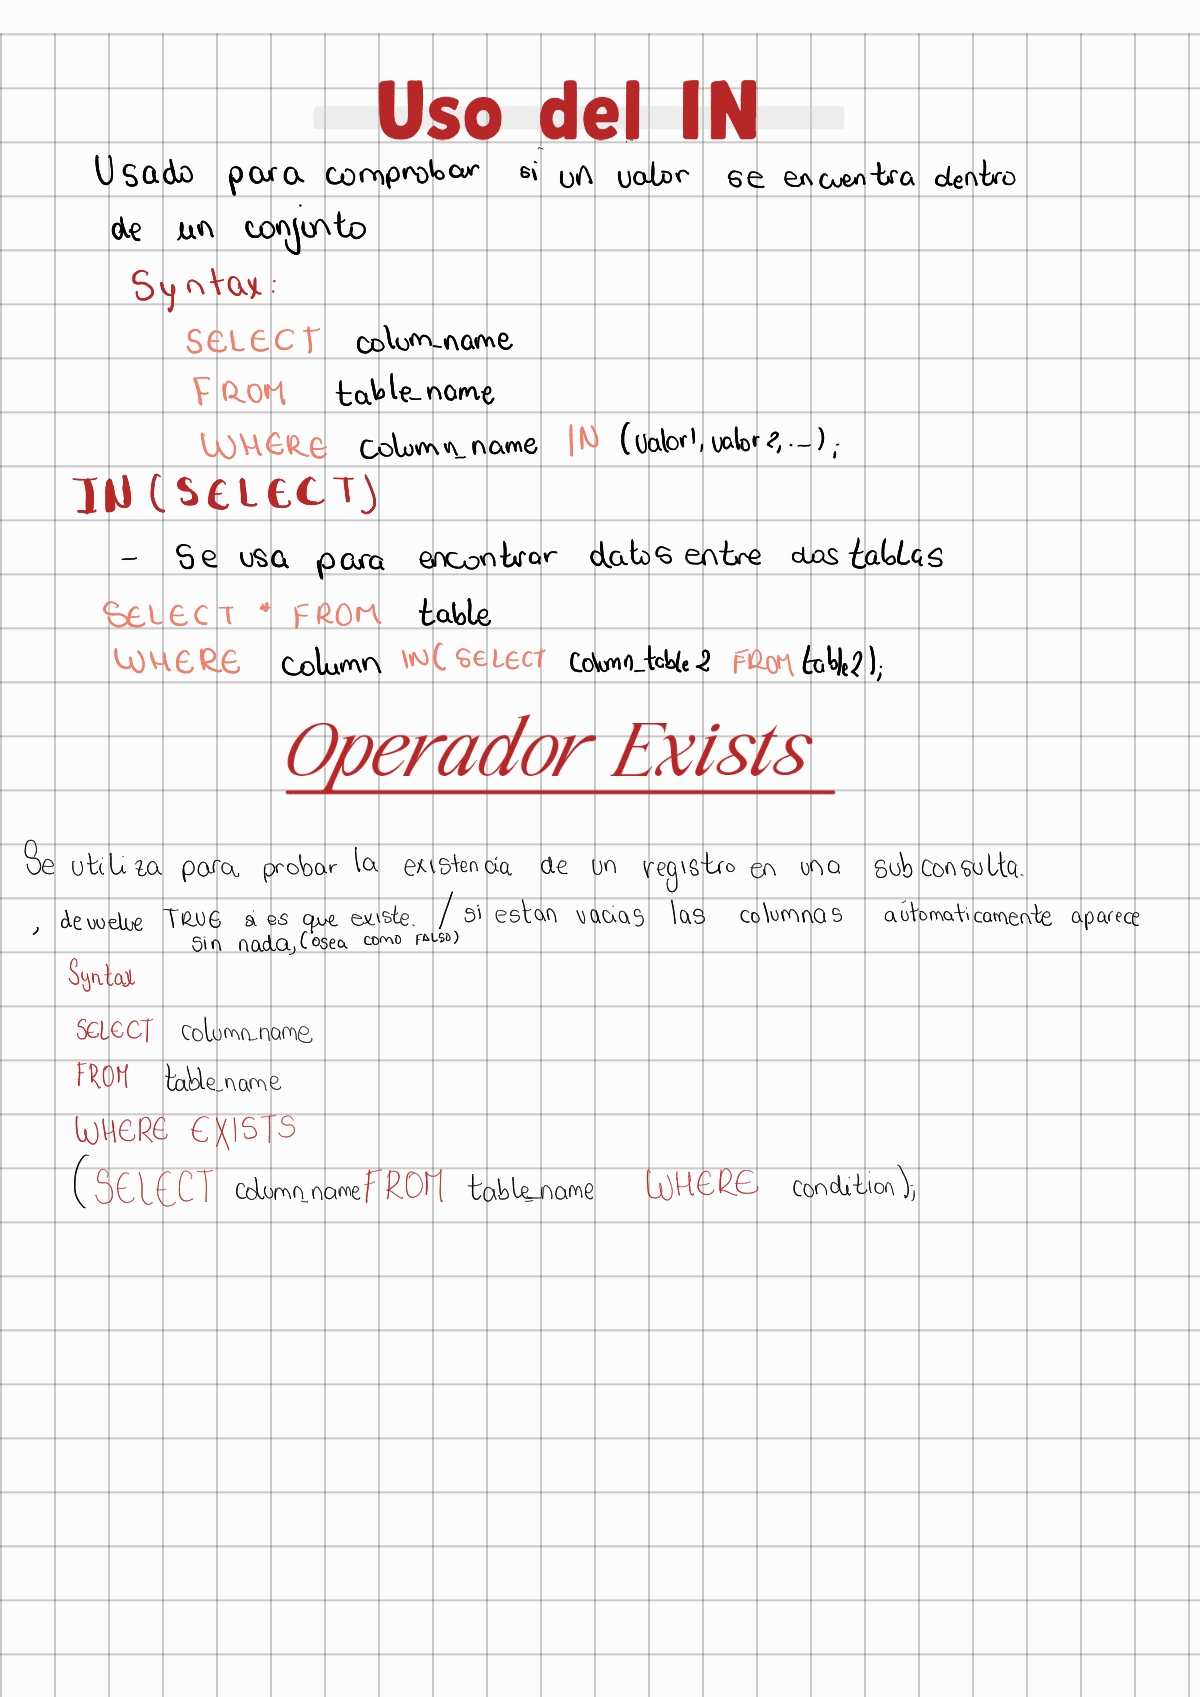 Uso del IN
Usado para comprobar si un valor se encuentra dentro
de un conjunto
Syntax:
SELECT colum_name
FROM table_name
WHERE column_name IN (valor1, valor2, ...);
IN (SELECT)
- Se usa para encontrar datos entre dos tablas
SELECT * FROM table
WHERE column IN( SELECT column_table2 FROM table2);
Operador Exists
Se utiliza para probar la existencia de un registro en una subconsulta.
, devuelve TRUE si es que existe. / si estan vacias las columnas automaticamente aparece
sin nada, (osea como FALSO)
Syntax
SELECT column_name
FROM table_name
WHERE EXISTS
(SELECT column_name FROM table_name WHERE condition);